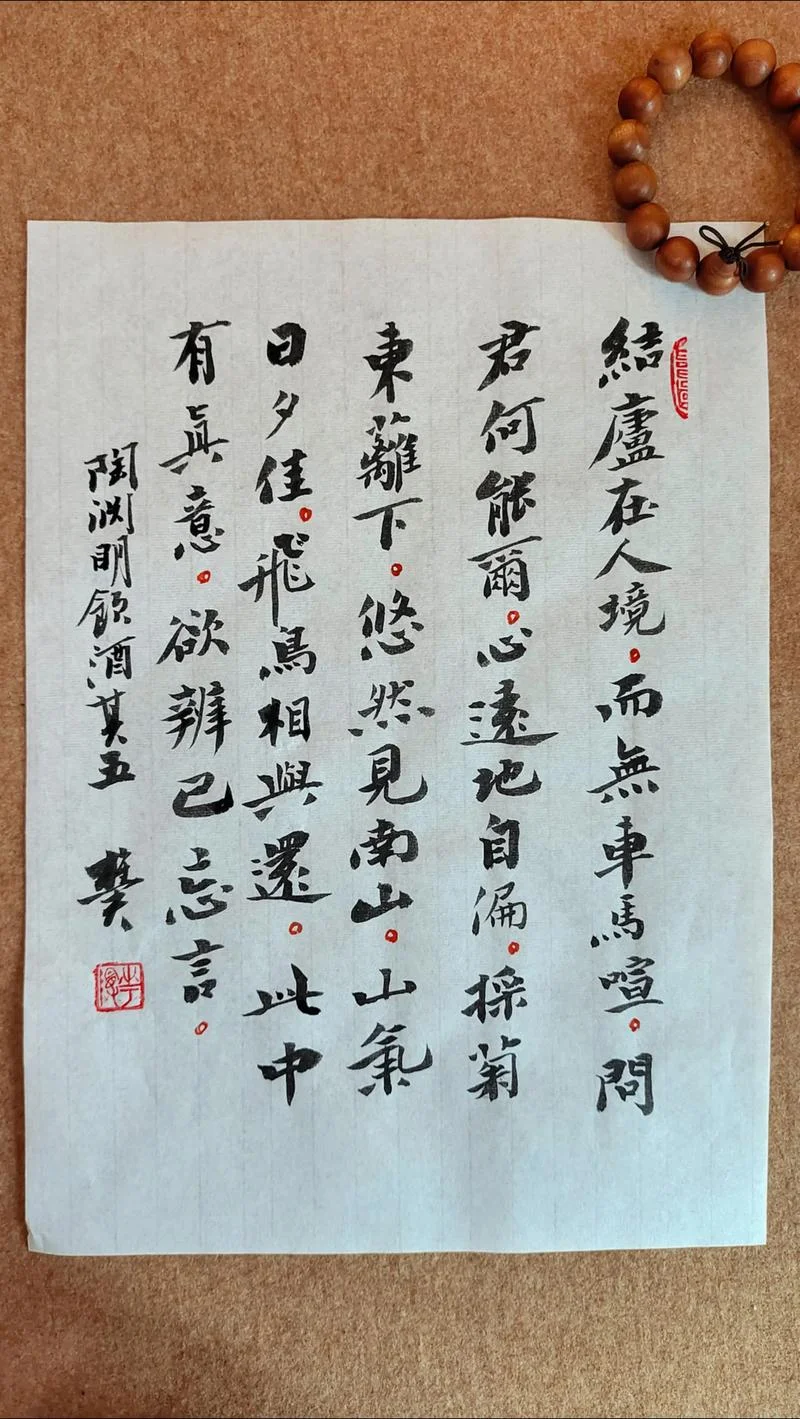 結廬在人境。而無車馬喧。問
君何能爾。心遠地自偏。採菊
東籬下。悠然見南山。山氣
日夕佳。飛鳥相與還。此中
有真意。欲辨已忘言。
陶渊明飲酒其五 樊